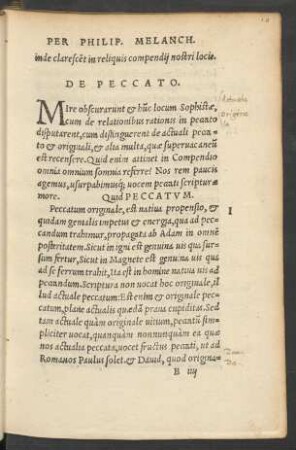 PER PHILIP. MELANCH.
inde clarescēt in reliquis compendij nostri locis.
DE PECCATO.
MIre obscurarunt & hūc locum Sophistæ,
cum de relationibus rationis in peccato
disputarent, cum distinguerent de actuali pecca-
to & originali, & alia multa, quæ superuacaneū
est recensere. Quid enim attinet in Compendio
omnia omnium somnia referre? Nos rem paucis
agemus, usurpabimusq; uocem peccati scripturæ
more. Quid PECCATVM.
Peccatum originale, est natiua propensio, &
quidam genialis impetus & energia, qua ad pec-
candum trahimur, propagata ab Adam in omnē
posteritatem. Sicut in igni est genuina uis qua sur-
sum fertur, Sicut in Magnete est genuina uis qua
ad se ferrum trahit, Ita est in homine natiua uis ad
peccandum. Scriptura non uocat hoc originale, il
lud actuale peccatum: Est enim & originale pec-
catum, plane actualis quædā praua cupiditas. Sed
tam actuale quàm originale uitium, peccatū sim-
pliciter uocat, quanquàm nonnunquàm ea quæ
nos actualia peccata, uocet fructus peccati, ut ad
Romanos Paulus solet. & Dauid, quod origina-
B iiij
I